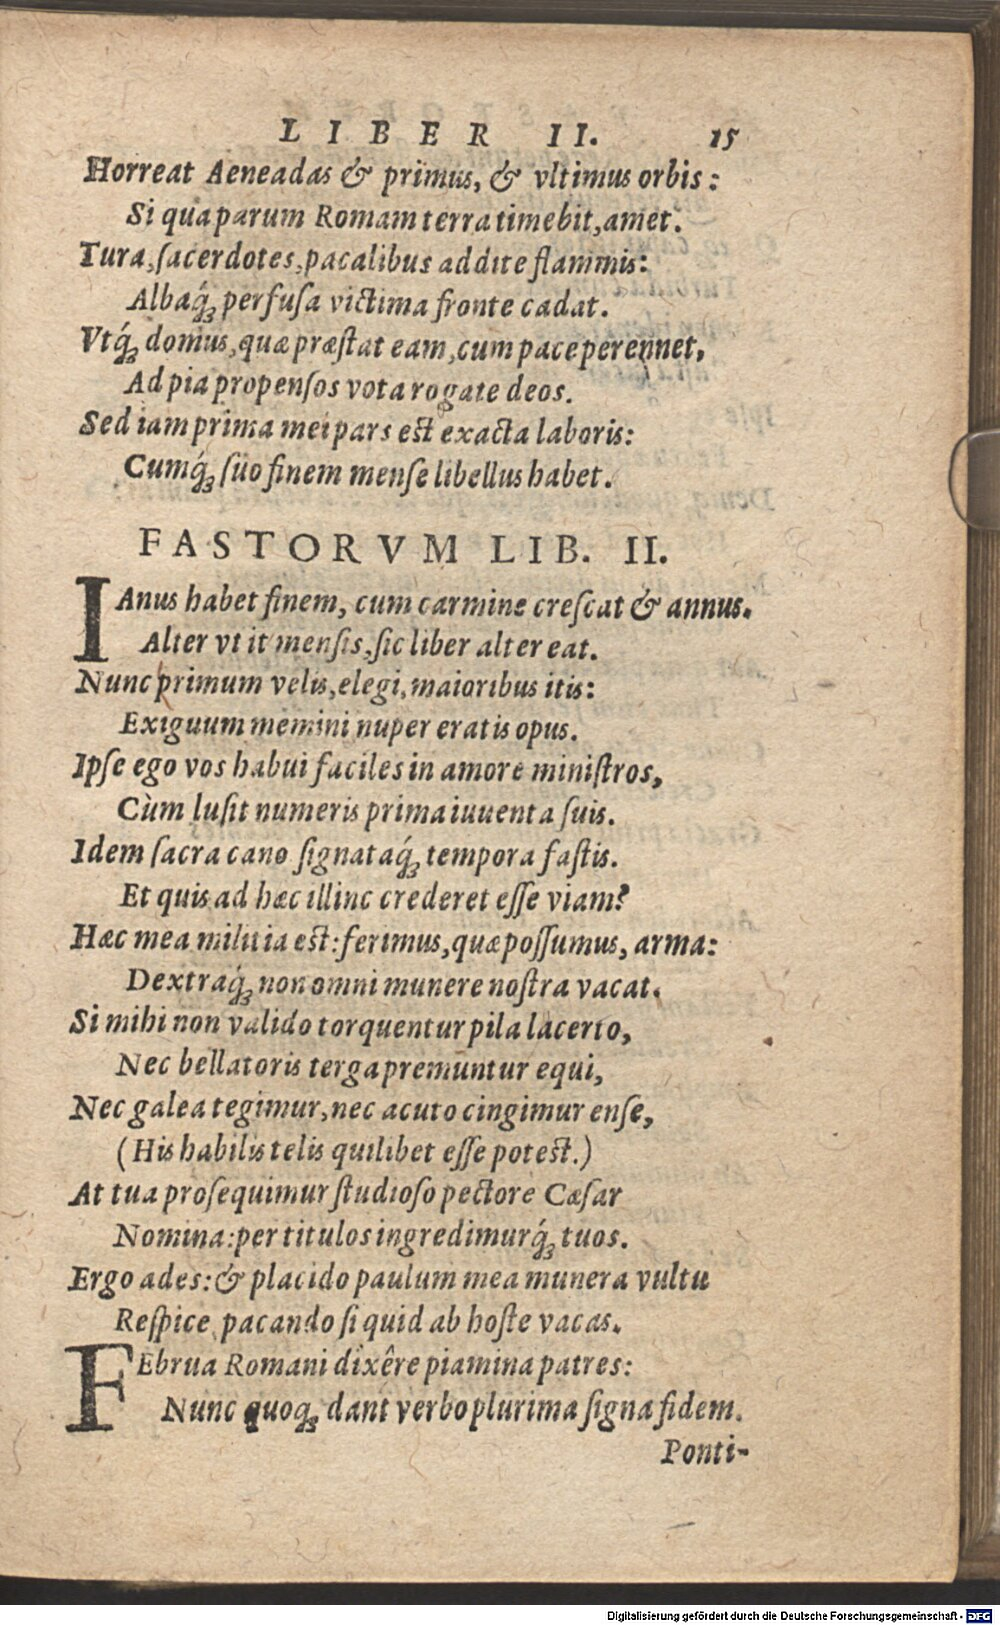 LIBER II. 15
Horreat Aeneadas & primus, & vltimus orbis:
Si qua parum Romam terra timebit, amet.
Tura, sacerdotes, pacalibus addite flammis:
Albaq́; perfusa victima fronte cadat.
Vtq́; domus, quæ præstat eam, cum pace perennet,
Ad pia propensos vota rogate deos.
Sed iam prima mei pars est exacta laboris:
Cumq́; suo finem mense libellus habet.
FASTORVM LIB. II.
IAnus habet finem, cum carmine crescat & annus.
Alter vt it mensis, sic liber alter eat.
Nunc primum velis, elegi, maioribus itis:
Exiguum memini nuper eratis opus.
Ipse ego vos habui faciles in amore ministros,
Cùm lusit numeris prima iuuenta suis.
Idem sacra cano signataq́; tempora fastis.
Et quis ad hæc illinc crederet esse viam?
Hæc mea militia est: ferimus, quæ possumus, arma:
Dextraq́; non omni munere nostra vacat.
Si mihi non valido torquentur pila lacerto,
Nec bellatoris terga premuntur equi,
Nec galea tegimur, nec acuto cingimur ense,
(His habilis telis quilibet esse potest.)
At tua prosequimur studioso pectore Cæsar
Nomina: per titulos ingredimurq́; tuos.
Ergo ades: & placido paulum mea munera vultu
Respice, pacando si quid ab hoste vacas.
FEbrua Romani dixêre piamina patres:
Nunc quoq; dant verbo plurima signa fidem.
Ponti-
Digitalisierung gefördert durch die Deutsche Forschungsgemeinschaft - DFG